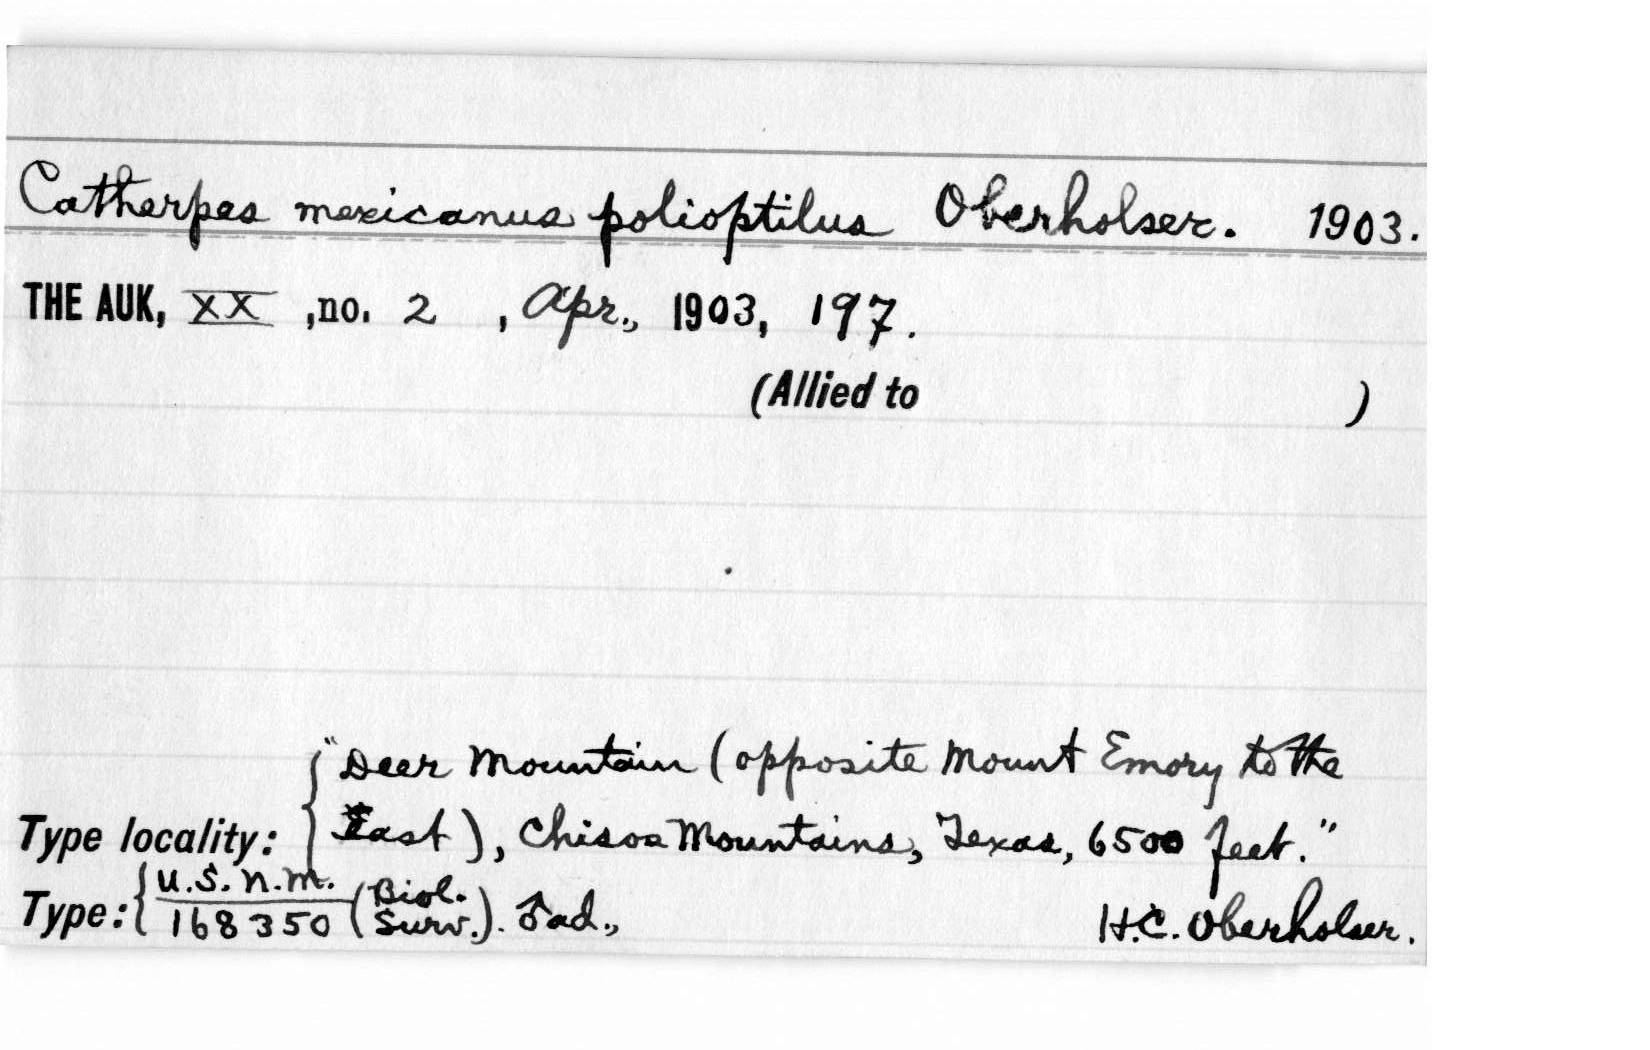 Catherpes mexicanus polioptilus Oberholser. 1903.
THE AUK, XX, no. 2, Apr., 1903, 197.
(Allied to )
"Deer Mountain (opposite Mount Emory to the
Type locality: East), Chisos Mountains, Texas, 6500 feet."
Type: U.S.N.M. 168350 (Biol. Surv.). ♂ad., H.C. Oberholser.